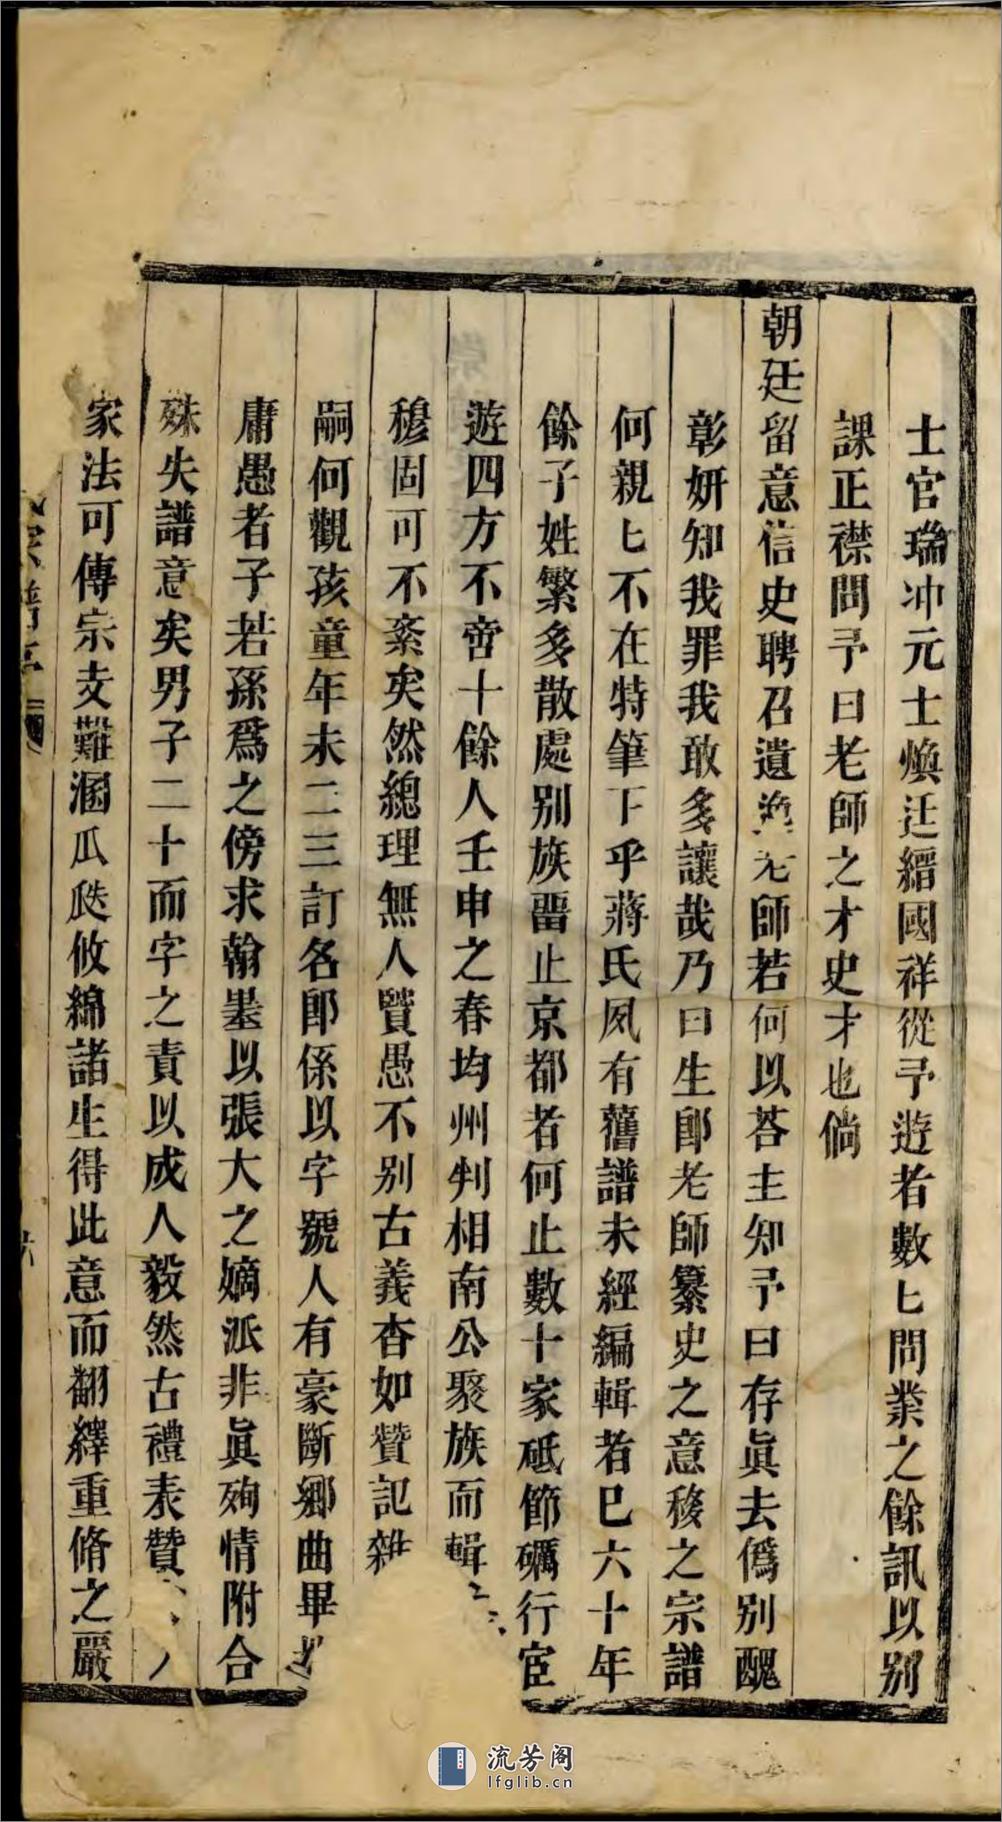 士官瑞冲元士煥廷縉國祥從予遊者數匕問業之餘訊以别
課正襟問予曰老師之才史才也倘
朝廷留意信史聘召遺老師若何以荅主知予曰存眞去僞别醜
彰妍知我罪我敢多讓哉乃曰生郎老師纂史之意移之宗譜
何親匕不在特筆下乎蔣氏夙有舊譜未經編輯者已六十年
餘子姓繁多散處别族畱止京都者何止數十家砥節礪行宦
遊四方不啻十餘人壬申之春均州判相南公聚族而輯
穆固可不紊矣然總理無人賢愚不别古義杳如贊記雜
嗣何觀孩童年未二三訂名郎係以字號人有豪斷鄉曲畢
庸愚者子若孫爲之傍求翰墨以張大之嫡派非眞殉情附合
殊失譜意矣男子二十而字之責以成人毅然古禮表贊
家法可傳宗支難溷瓜瓞攸綿諸生得此意而翻繹重脩之嚴
宗譜
六
流芳阁
lfglib.cn